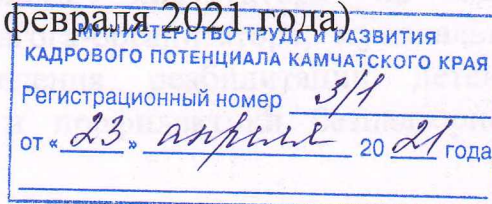 февраля 2021 года)
МИНИСТЕРСТВО ТРУДА И РАЗВИТИЯ
КАДРОВОГО ПОТЕНЦИАЛА КАМЧАТСКОГО КРАЯ
Регистрационный номер 3/1
от «23» апреля 2021 года